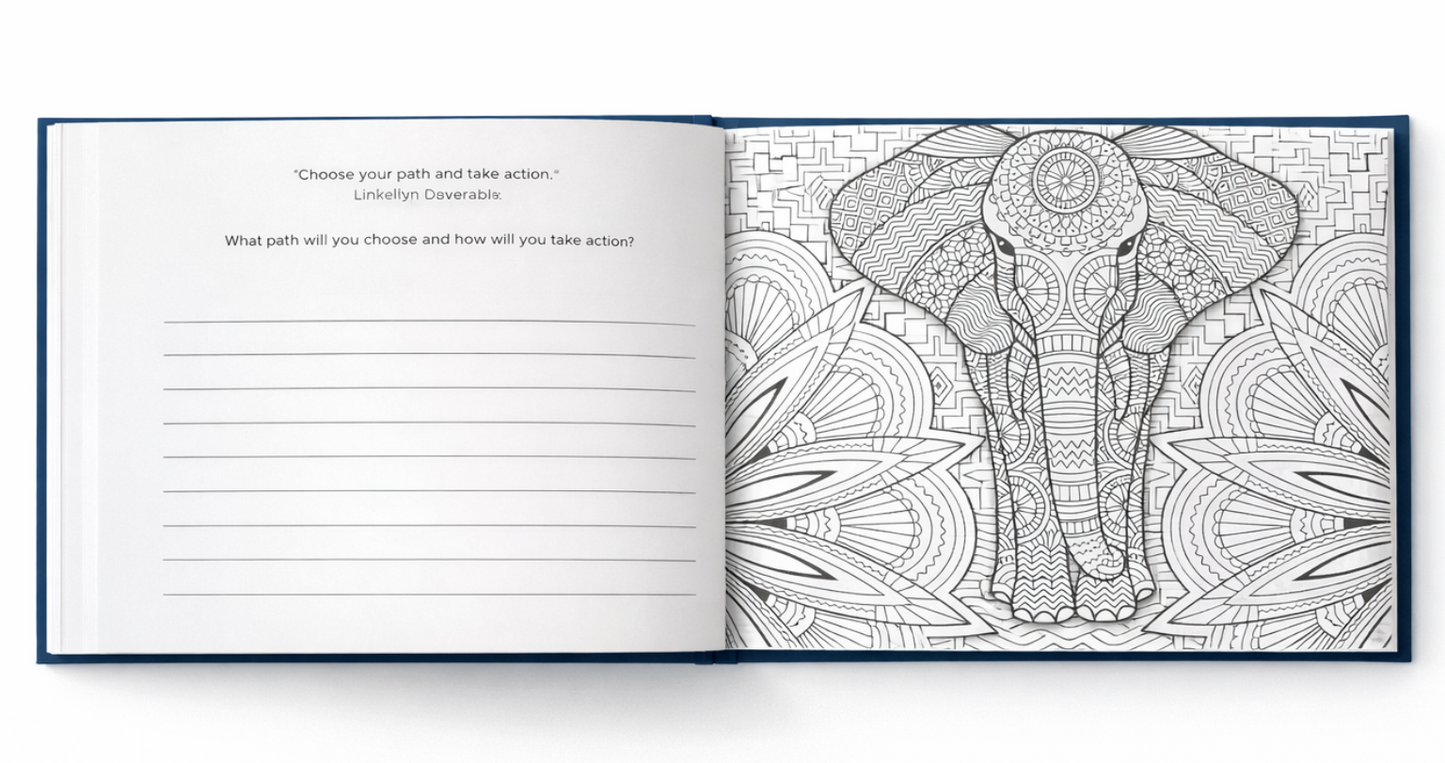 "Choose your path and take action."
Linkellyn Daverable.
What path will you choose and how will you take action?